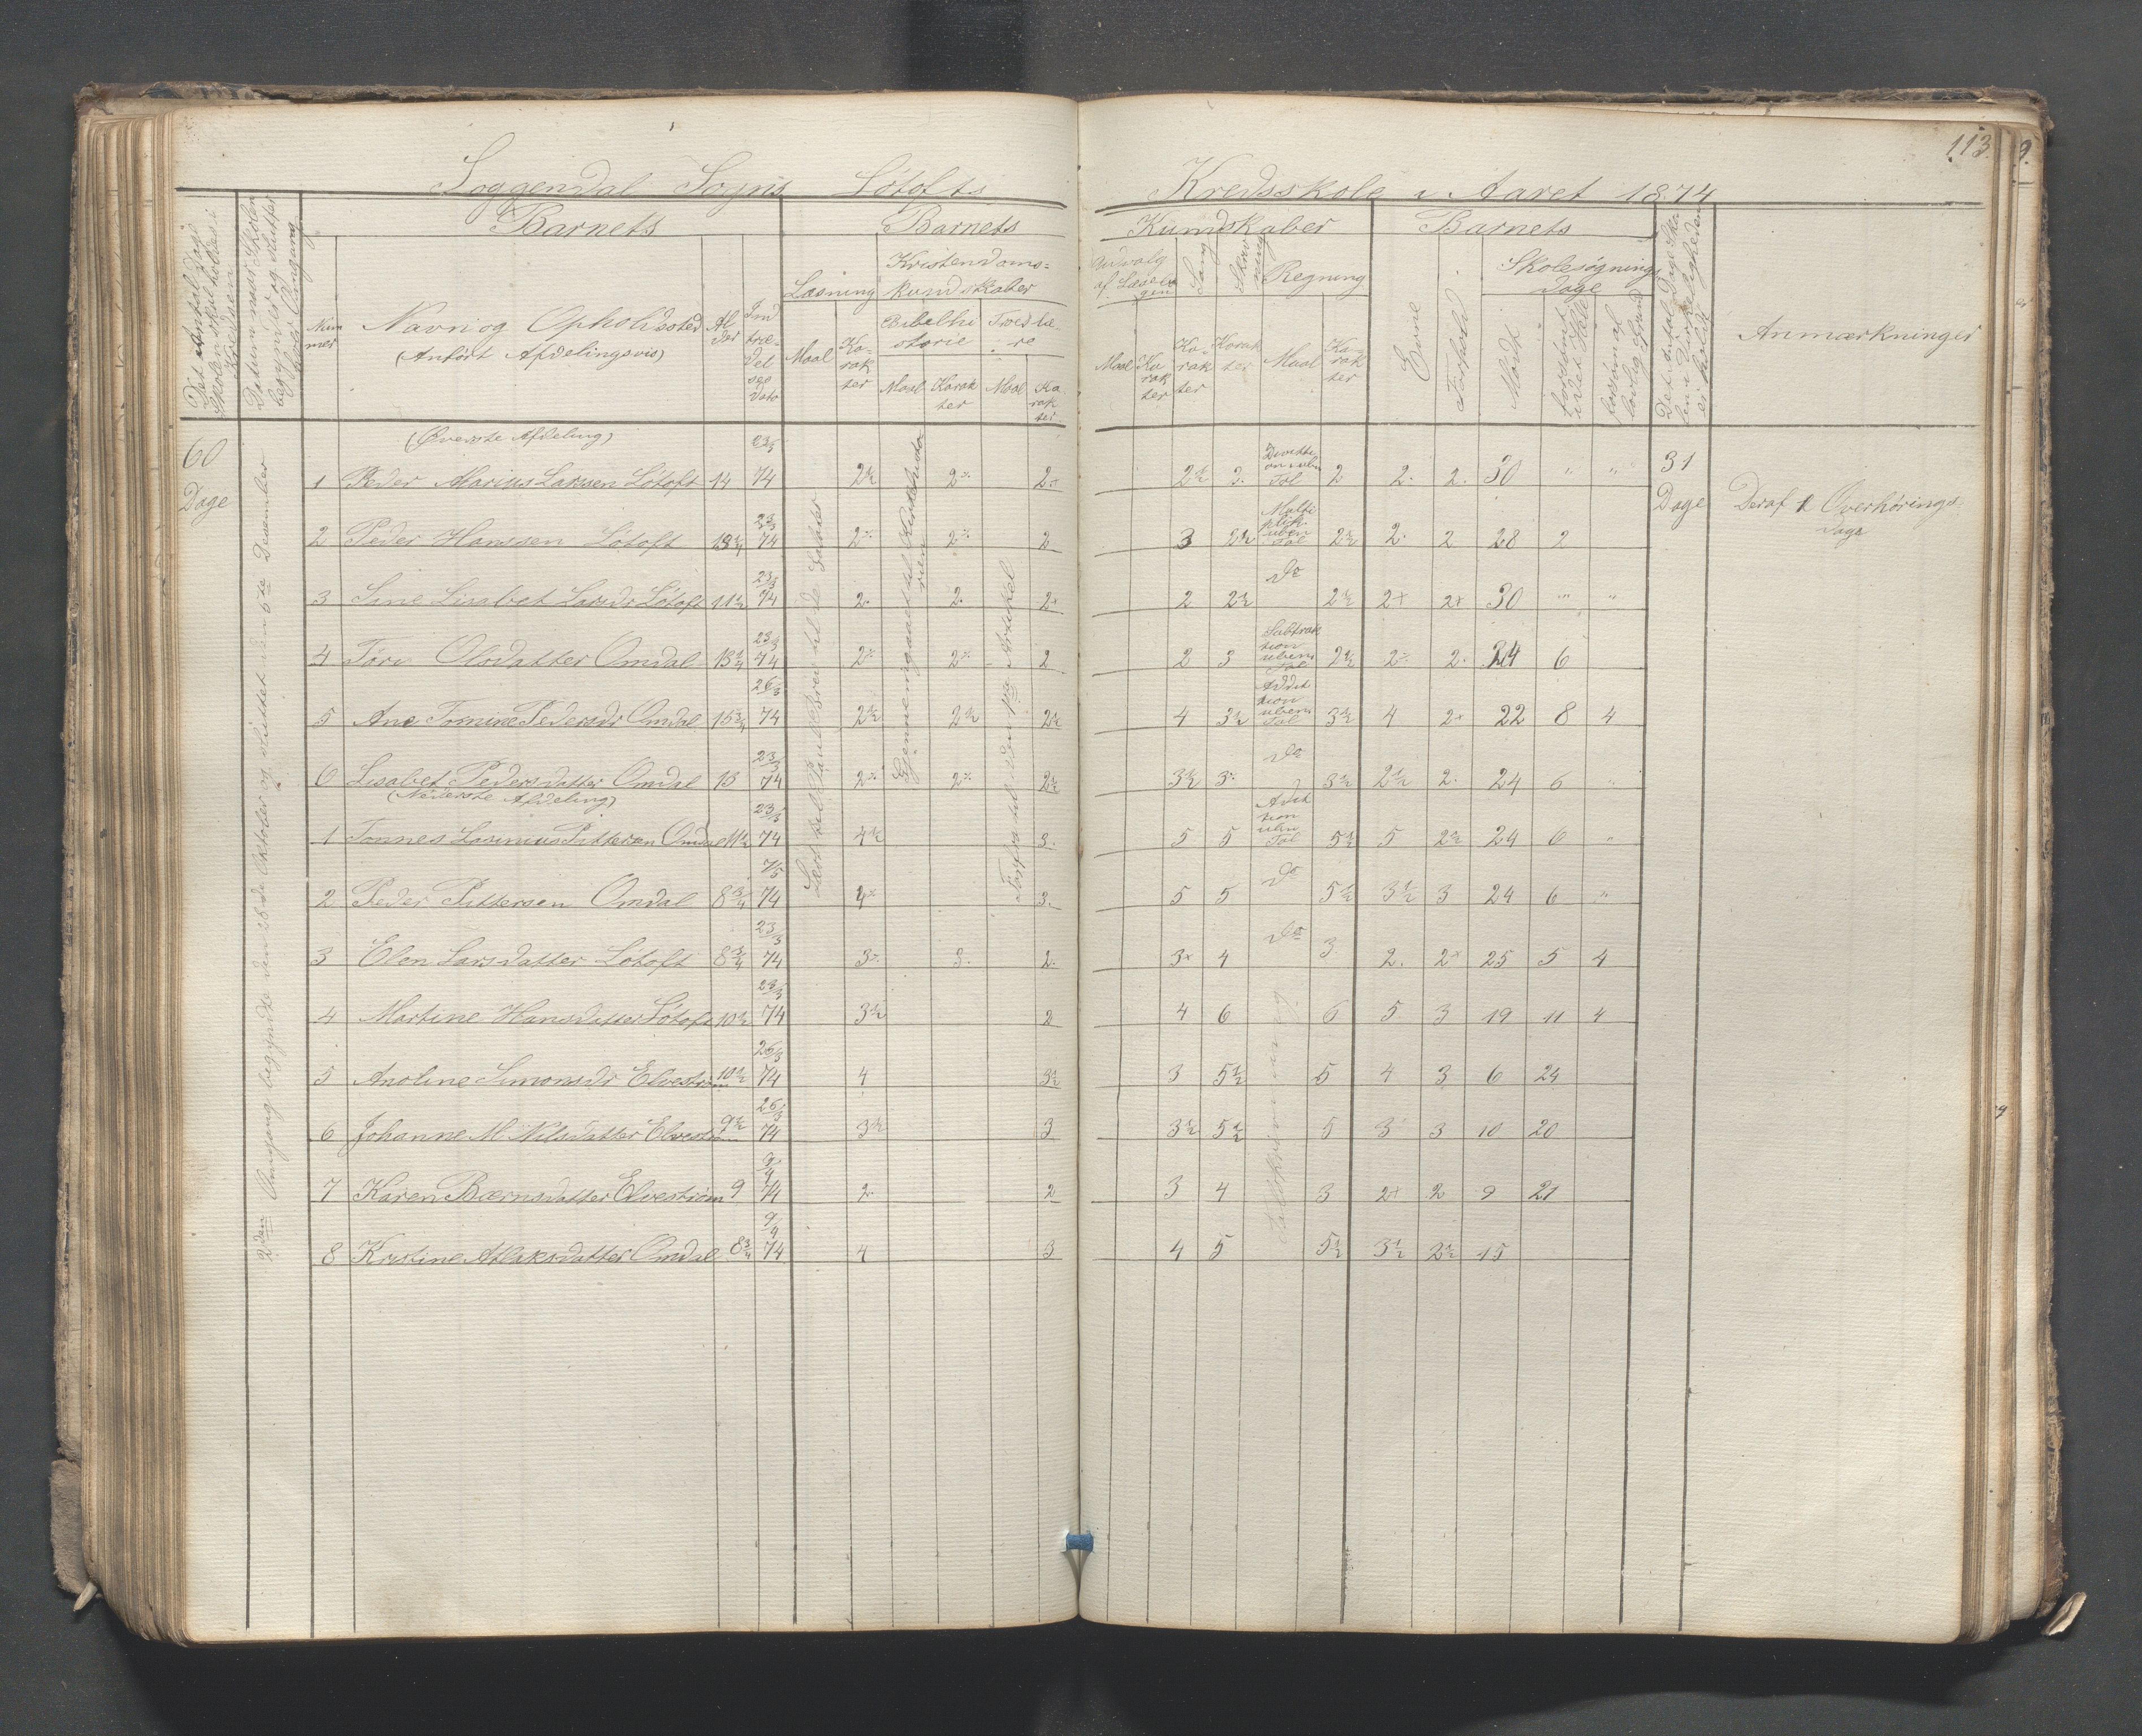 113
Soggendal Sogns Løtofts Kredsskole i Aaret 1874
Det Antal Dage Skolen skal holdes i Kredsen
Datum naar Skolen begynder og slutter hver Omgang
Barnets
Barnets
Kundskaber
Barnets
Nummer
Navn og Opholdssted
(Anført Afdelingsvis)
Alder
Indtrædelses Dato
Læsning
Maal
Karakter
Kristendoms=kundskaber
Bibelhistorie
Maal
Karakter
Troeslære
Maal
Karakter
Udvalg af Læsebogen
Maal
Karakter
Sang
Karakter
Skrivning
Karakter
Regning
Maal
Karakter
Evne
Forhold
Skolesøgnings Dage
Mødt
forsømt i det Hele
forsømt af lovlig Grund
Det Antal Dage Skolen i Virkeligheden er holdt
Anmærkninger
60 Dage
2den Omgang begyndte den 28de Oktober og sluttet den 5te December
31 Dage
Deraf 1 Overhørings Dage
(Øverste Afdeling)
1 Peder Marius Larssen Løtoft 14 23/3 74 2½ 2 2 2½ 2. Tal 2 2. 2. 30 " "
2 Peder Hanssen Løtoft 13¼ 23/3 74 2 2 2 3 2½ Multiplik. uben Tal 2½ 2. 2 28 2
3 Sine Lisabet Larsdr Løtoft 11½ 23/3 74 2. 2. 2+ 2 2½ do 2½ 2+ 2+ 30 " "
4 Olsdatter Omdal 13¼ 23/3 74 2 2 2 2 3 Subtraktion uben Tal 2½ 2 2. 24 6
5 Ane Tomine Pedersdr Omdal 15¾ 26/3 74 2½ 2½ 2½ 4 3½ Addition ubenv Tal 3½ 4 2+ 22 8 4
6 Lisabet Pedersdatter Omdal 13 23/3 74 2 2 2½ 3½ 3 do 3½ 2½ 2. 24 6 "
(Nederste Afdeling)
1 Tonnes Pittersen Omdal 11½ 23/3 74 4½ 3. 5 5 Adition Tal 5½ 5 2½ 24 6 "
2 Peder Pittersen Omdal 8¾ 7/5 74 4 3. 5 5 do 5½ 3½ 3 24 6 "
3 Elen Larsdatter Løtoft 8¾ 23/3 74 3 3. 2. 3+ 4 do 3 2. 2+ 25 5 4
4 Martine Hansdatter Løtoft 10½ 23/3 74 3½ 2 4 6 6 5 3 19 11 4
5 Anoline Simonsdr Elvestrøm 10½ 26/3 74 4 3½ 3 5½ 5 4 3 6 24
6 Johanne M Nilsdatter Elvestrøm 9½ 26/3 74 3½ 3 3½ 5½ 5 3 3 10 20
7 Karen Bærnsdatter Elvestrøm 9 9/4 74 2. 2 3 4 3 2+ 2 9 21
8 Kristine Atlaksdatter Omdal 8¾ 9/4 74 4 3 4 5 5½ 3½ 2½ 15